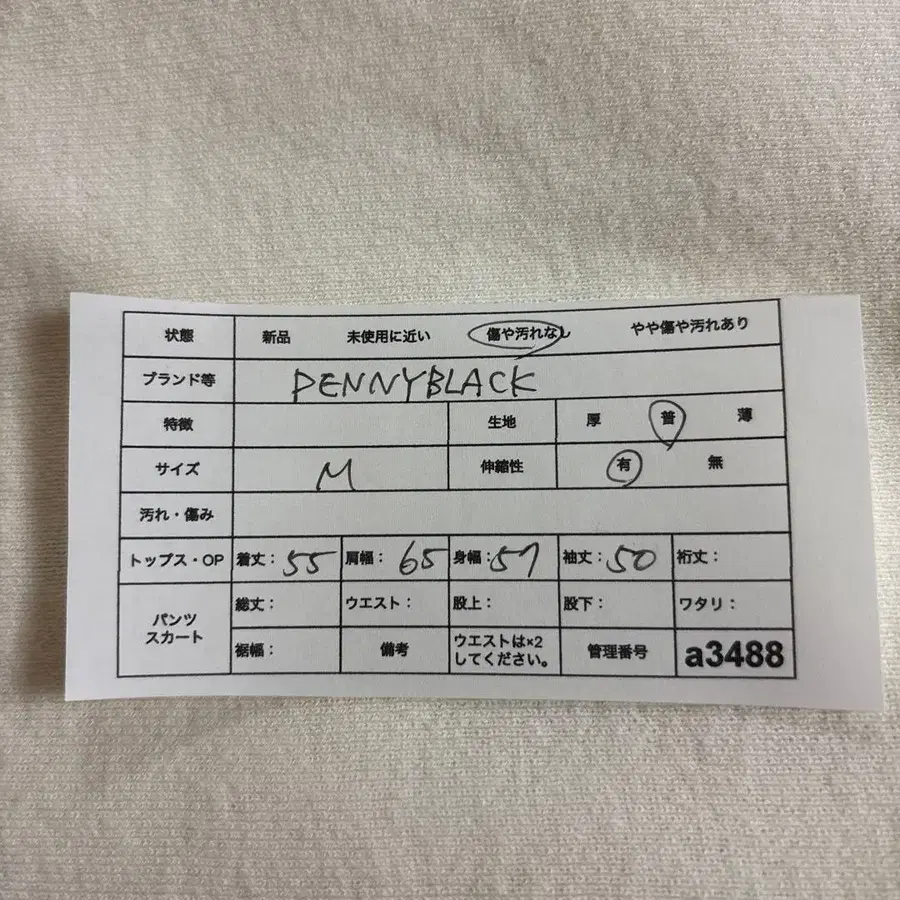 状態 新品 未使用に近い 傷や汚れなし やや傷や汚れあり
ブランド等 PENNYBLACK
特徴 生地 厚 普 薄
サイズ M 伸縮性 有 無
汚れ・傷み
トップス・OP 着丈：55 肩幅：65 身幅：57 袖丈：50 裄丈：
パンツ
スカート
総丈： ウエスト： 股上： 股下： ワタリ：
裾幅： 備考 ウエストは×2
してください。 管理番号 a3488